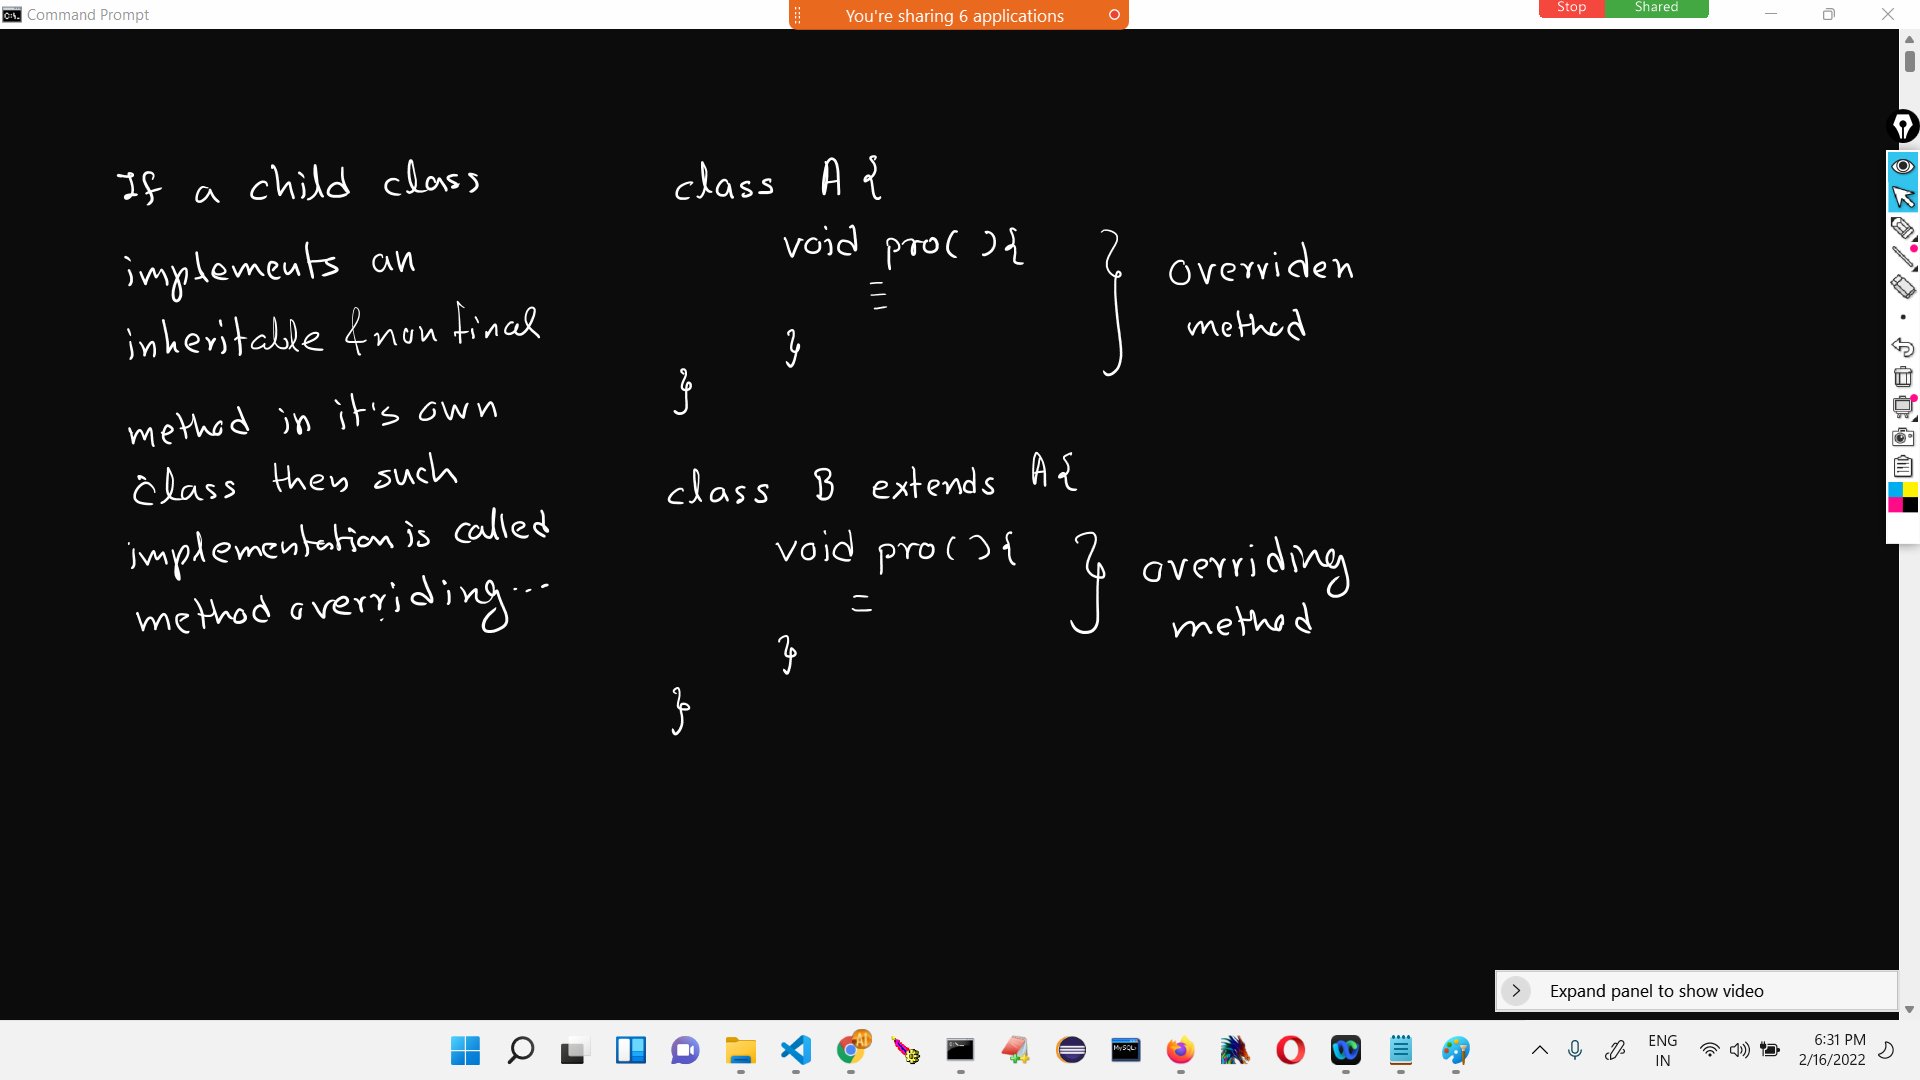 Command Prompt
You're sharing 6 applications
Stop
Shared
If a child class
implements an
inheritable & non final
method in it's own
class then such
implementation is called
method overriding...
class A {
void pro( ){
}
}
overriden
method
class B extends A{
void pro( ){
=
}
}
overriding
method
Expand panel to show video
ENG
IN
6:31 PM
2/16/2022